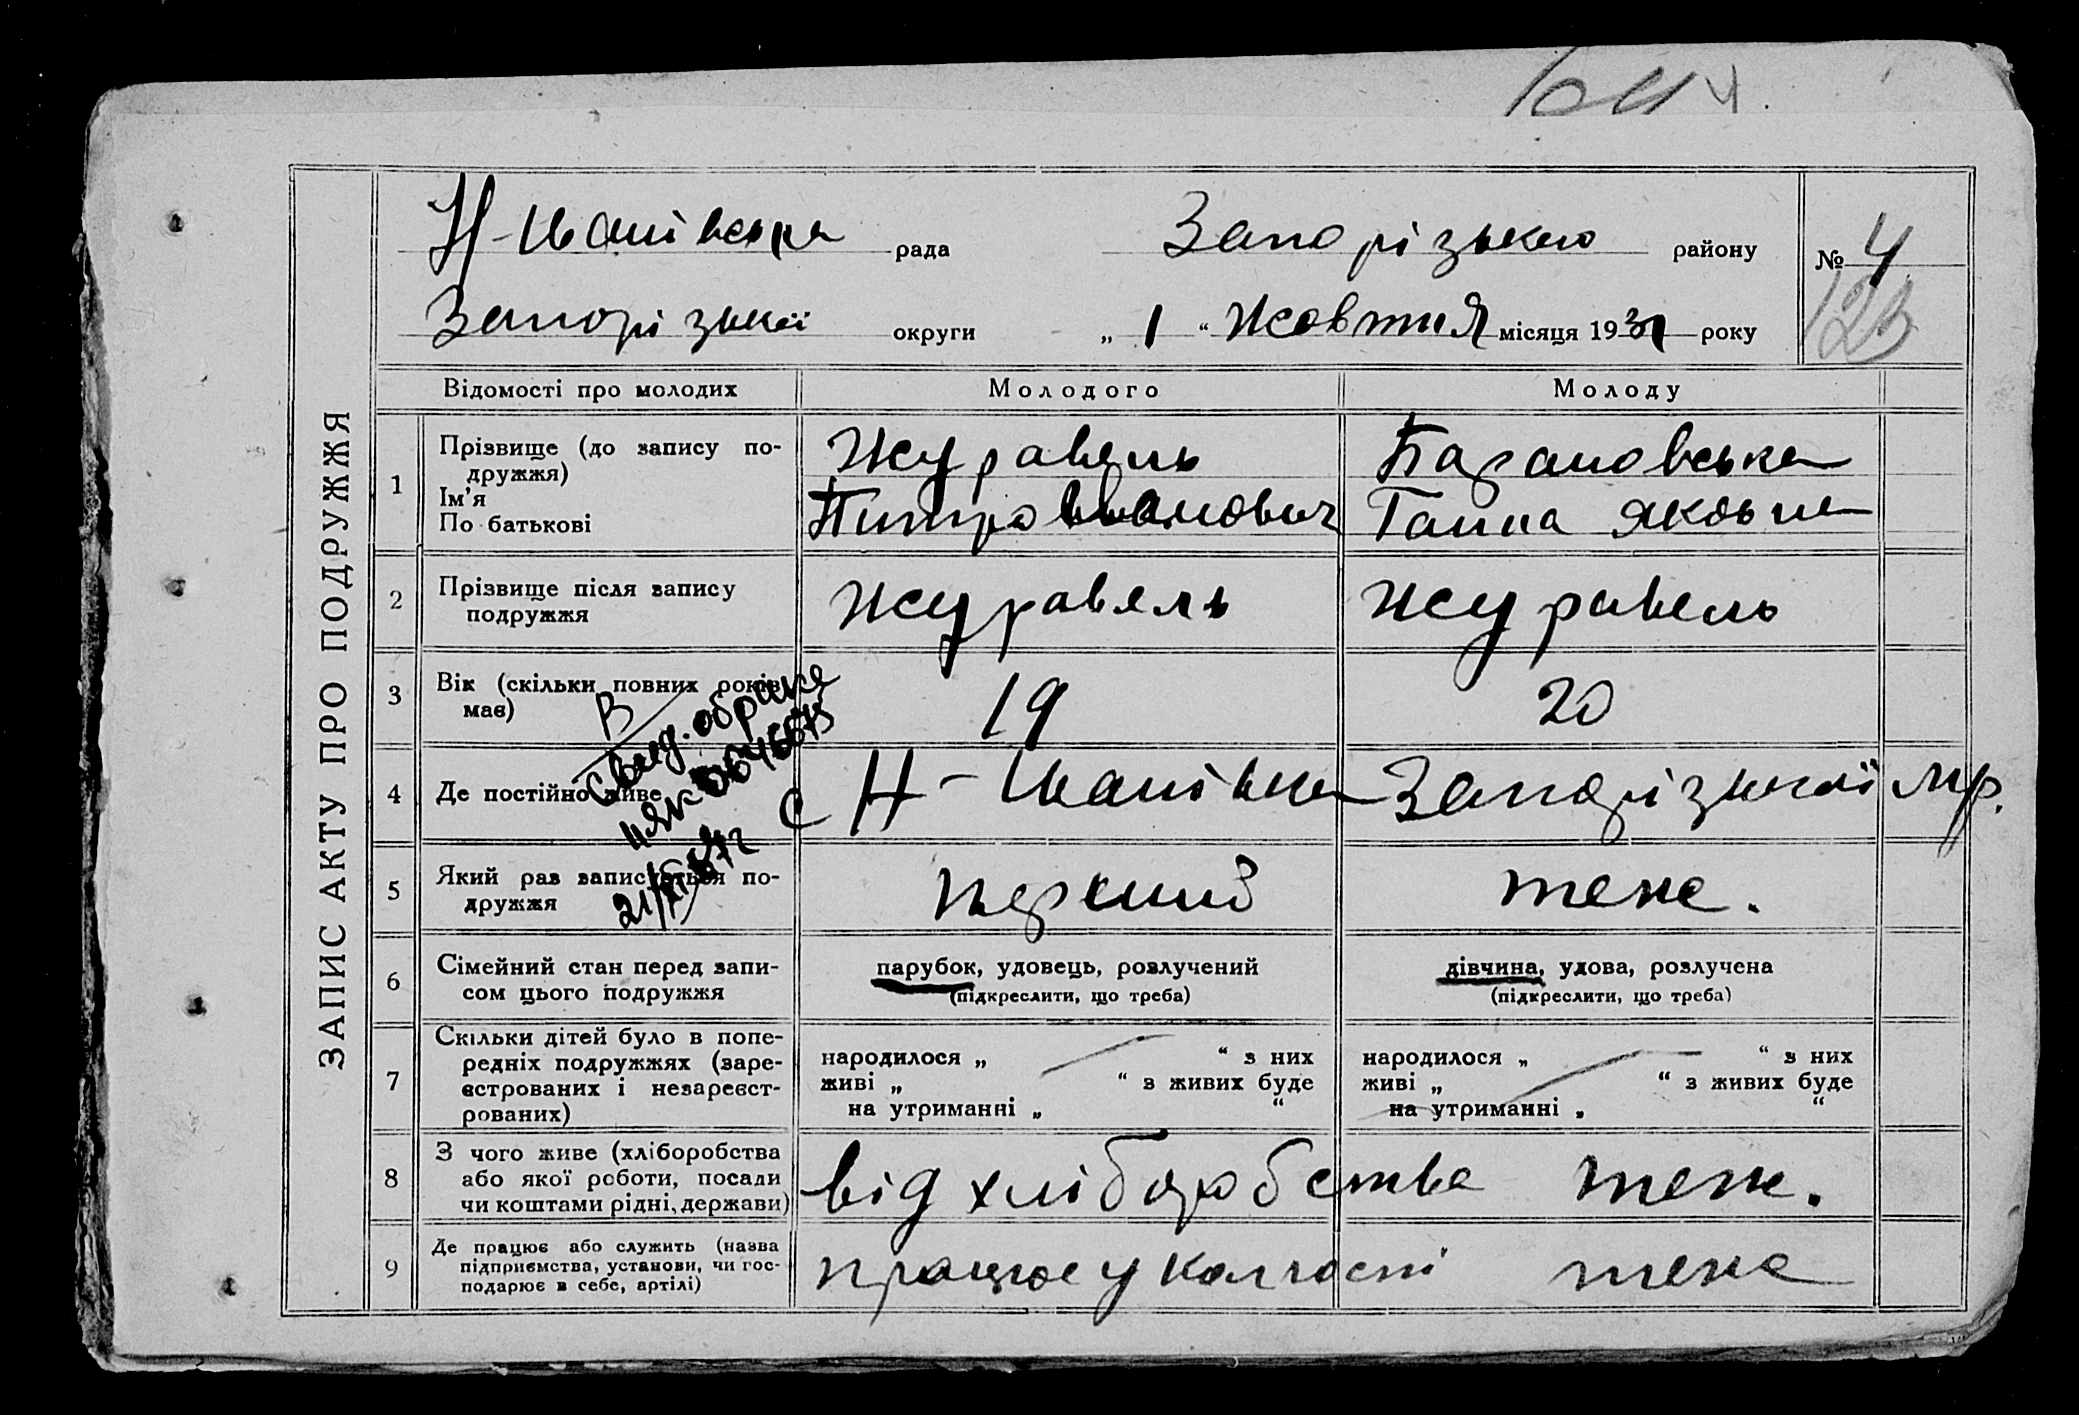 ЗАПИС АКТУ ПРО ПОДРУЖЖЯ
Н-Иванівська рада Запорізького району № 4
123
Запорізької округи „ 1 “ Жовтня місяця 1931 року
Відомості про молодих Молодого Молоду
1 Прізвище (до запису по-
дружжя) Журавель Барановська
Ім'я
По батькові Питро Иванович Ганна Яковна
2 Прізвище після запису
подружжя Журавель Журавель
3 Вік (скільки повних років
має) 19 20
В
свид. о браке
ІІЯК 0646673
21/XI 1967г
4 Де постійно живе с Н-Иванівка Запорізької мр.
5 Який раз записується по-
дружжя перший теже.
6 Сімейний стан перед запи-
сом цього подружжя
парубок, удовець, розлучений дівчина, удова, розлучена
(підкреслити, що треба) (підкреслити, що треба)
7 Скільки дітей було в попе-
редніх подружжях (заре-
єстрованих і незареєст-
рованих)
народилося „ “ з них народилося „ “ з них
живі „ “ з живих буде живі „ “ з живих буде
на утриманні „ “ на утриманні „ “
8 З чого живе (хліборобства
або якої роботи, посади
чи коштами рідні, держави)
від хліборобства теж.
9 Де працює або служить (назва
підприємства, установи, чи гос-
подарює в себе, артілі)
працює у колгоспі теже